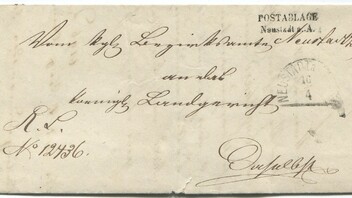 POSTABLAGE
Neustadt a. A.
Vom kgl. Bezirksamte Neustadt
an das
koenigl. Landgericht
NEUSTADT
16
4
R. S.
No 12436.
Daselbst